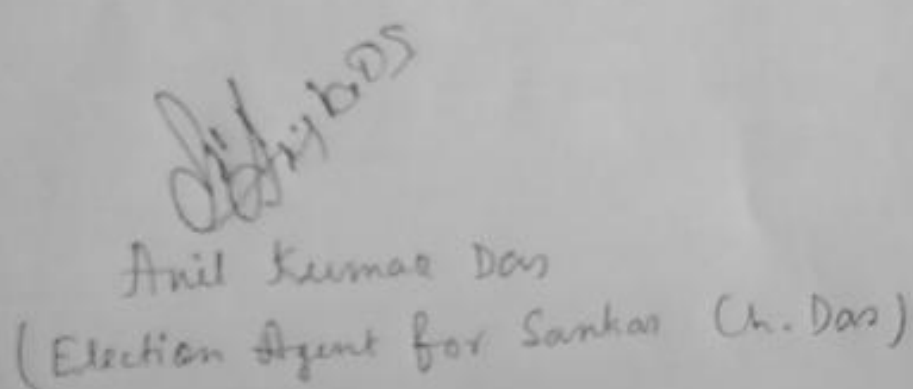 Anil Kumar Das
(Election Agent for Sankar Ch. Das)